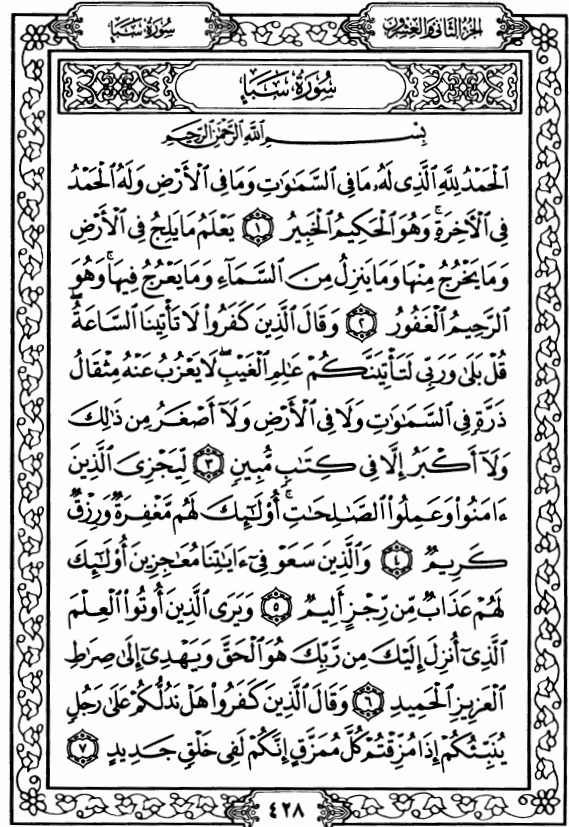 الجزء الثاني والعشرون
سُورَةُ سَبَإٍ
سُورَةُ سَبَإٍ
بِسۡمِ ٱللَّهِ ٱلرَّحۡمَٰنِ ٱلرَّحِيمِ
ٱلۡحَمۡدُ لِلَّهِ ٱلَّذِي لَهُۥ مَا فِي ٱلسَّمَٰوَٰتِ وَمَا فِي ٱلۡأَرۡضِ وَلَهُ ٱلۡحَمۡدُ
فِي ٱلۡأٓخِرَةِۚ وَهُوَ ٱلۡحَكِيمُ ٱلۡخَبِيرُ ١ يَعۡلَمُ مَا يَلِجُ فِي ٱلۡأَرۡضِ
وَمَا يَخۡرُجُ مِنۡهَا وَمَا يَنزِلُ مِنَ ٱلسَّمَآءِ وَمَا يَعۡرُجُ فِيهَاۚ وَهُوَ
ٱلرَّحِيمُ ٱلۡغَفُورُ ٢ وَقَالَ ٱلَّذِينَ كَفَرُواْ لَا تَأۡتِينَا ٱلسَّاعَةُۖ
قُلۡ بَلَىٰ وَرَبِّي لَتَأۡتِيَنَّكُمۡ عَٰلِمِ ٱلۡغَيۡبِۖ لَا يَعۡزُبُ عَنۡهُ مِثۡقَالُ
ذَرَّةٖ فِي ٱلسَّمَٰوَٰتِ وَلَا فِي ٱلۡأَرۡضِ وَلَآ أَصۡغَرُ مِن ذَٰلِكَ
وَلَآ أَكۡبَرُ إِلَّا فِي كِتَٰبٖ مُّبِينٖ ٣ لِّيَجۡزِيَ ٱلَّذِينَ
ءَامَنُواْ وَعَمِلُواْ ٱلصَّٰلِحَٰتِۚ أُوْلَٰٓئِكَ لَهُم مَّغۡفِرَةٞ وَرِزۡقٞ
كَرِيمٞ ٤ وَٱلَّذِينَ سَعَوۡ فِيٓ ءَايَٰتِنَا مُعَٰجِزِينَ أُوْلَٰٓئِكَ
لَهُمۡ عَذَابٞ مِّن رِّجۡزٍ أَلِيمٞ ٥ وَيَرَى ٱلَّذِينَ أُوتُواْ ٱلۡعِلۡمَ
ٱلَّذِيٓ أُنزِلَ إِلَيۡكَ مِن رَّبِّكَ هُوَ ٱلۡحَقَّ وَيَهۡدِيٓ إِلَىٰ صِرَٰطِ
ٱلۡعَزِيزِ ٱلۡحَمِيدِ ٦ وَقَالَ ٱلَّذِينَ كَفَرُواْ هَلۡ نَدُلُّكُمۡ عَلَىٰ رَجُلٖ
يُنَبِّئُكُمۡ إِذَا مُزِّقۡتُمۡ كُلَّ مُمَزَّقٍ إِنَّكُمۡ لَفِي خَلۡقٖ جَدِيدٍ ٧
٤٢٨